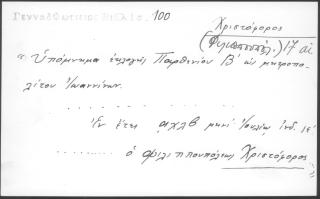 Γενναδίου Βιβλιοθ. 100
Χριστόφορος
(Φιλιππουπ.) 17 αἰ
τ. Ὑπόμνημα ἐκλογῆς Παρθενίου Β' ὡς μητροπο-
λίτου Ἰωαννίνων.
. . . . . . . . . . . .
Ἐν ἔτει αχλβ μηνὶ Ἰουλίῳ Ἰνδ. ιε'
. . . . . . . . . ὁ Φιλιππουπόλεως Χριστόφορος